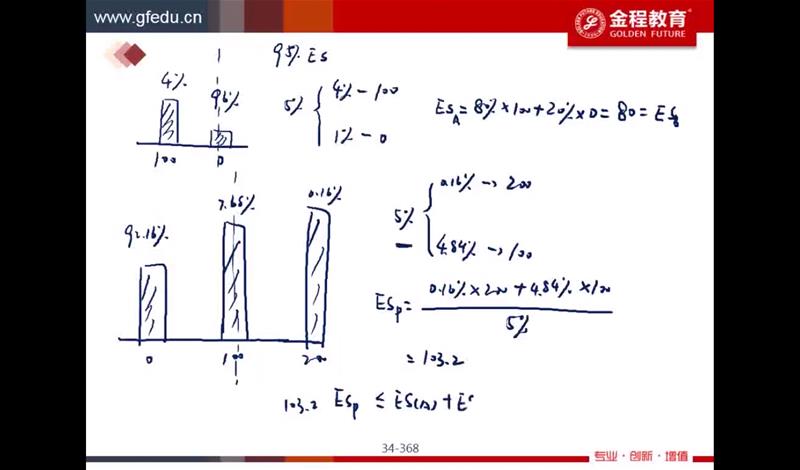 www.gfedu.cn
金程教育
GOLDEN FUTURE
95% ES
4%
96%
100
0
5%
4% — 100
1% — 0
ES_A = 80% × 100 + 20% × 0 = 80 = ES_B
92.16%
7.68%
0.16%
0
100
200
5%
0.16% → 200
4.84% → 100
ES_P = 0.16% × 200 + 4.84% × 100
5%
= 103.2
103.2 ES_P ≤ ES(A) + E
34-368
专业·创新·增值